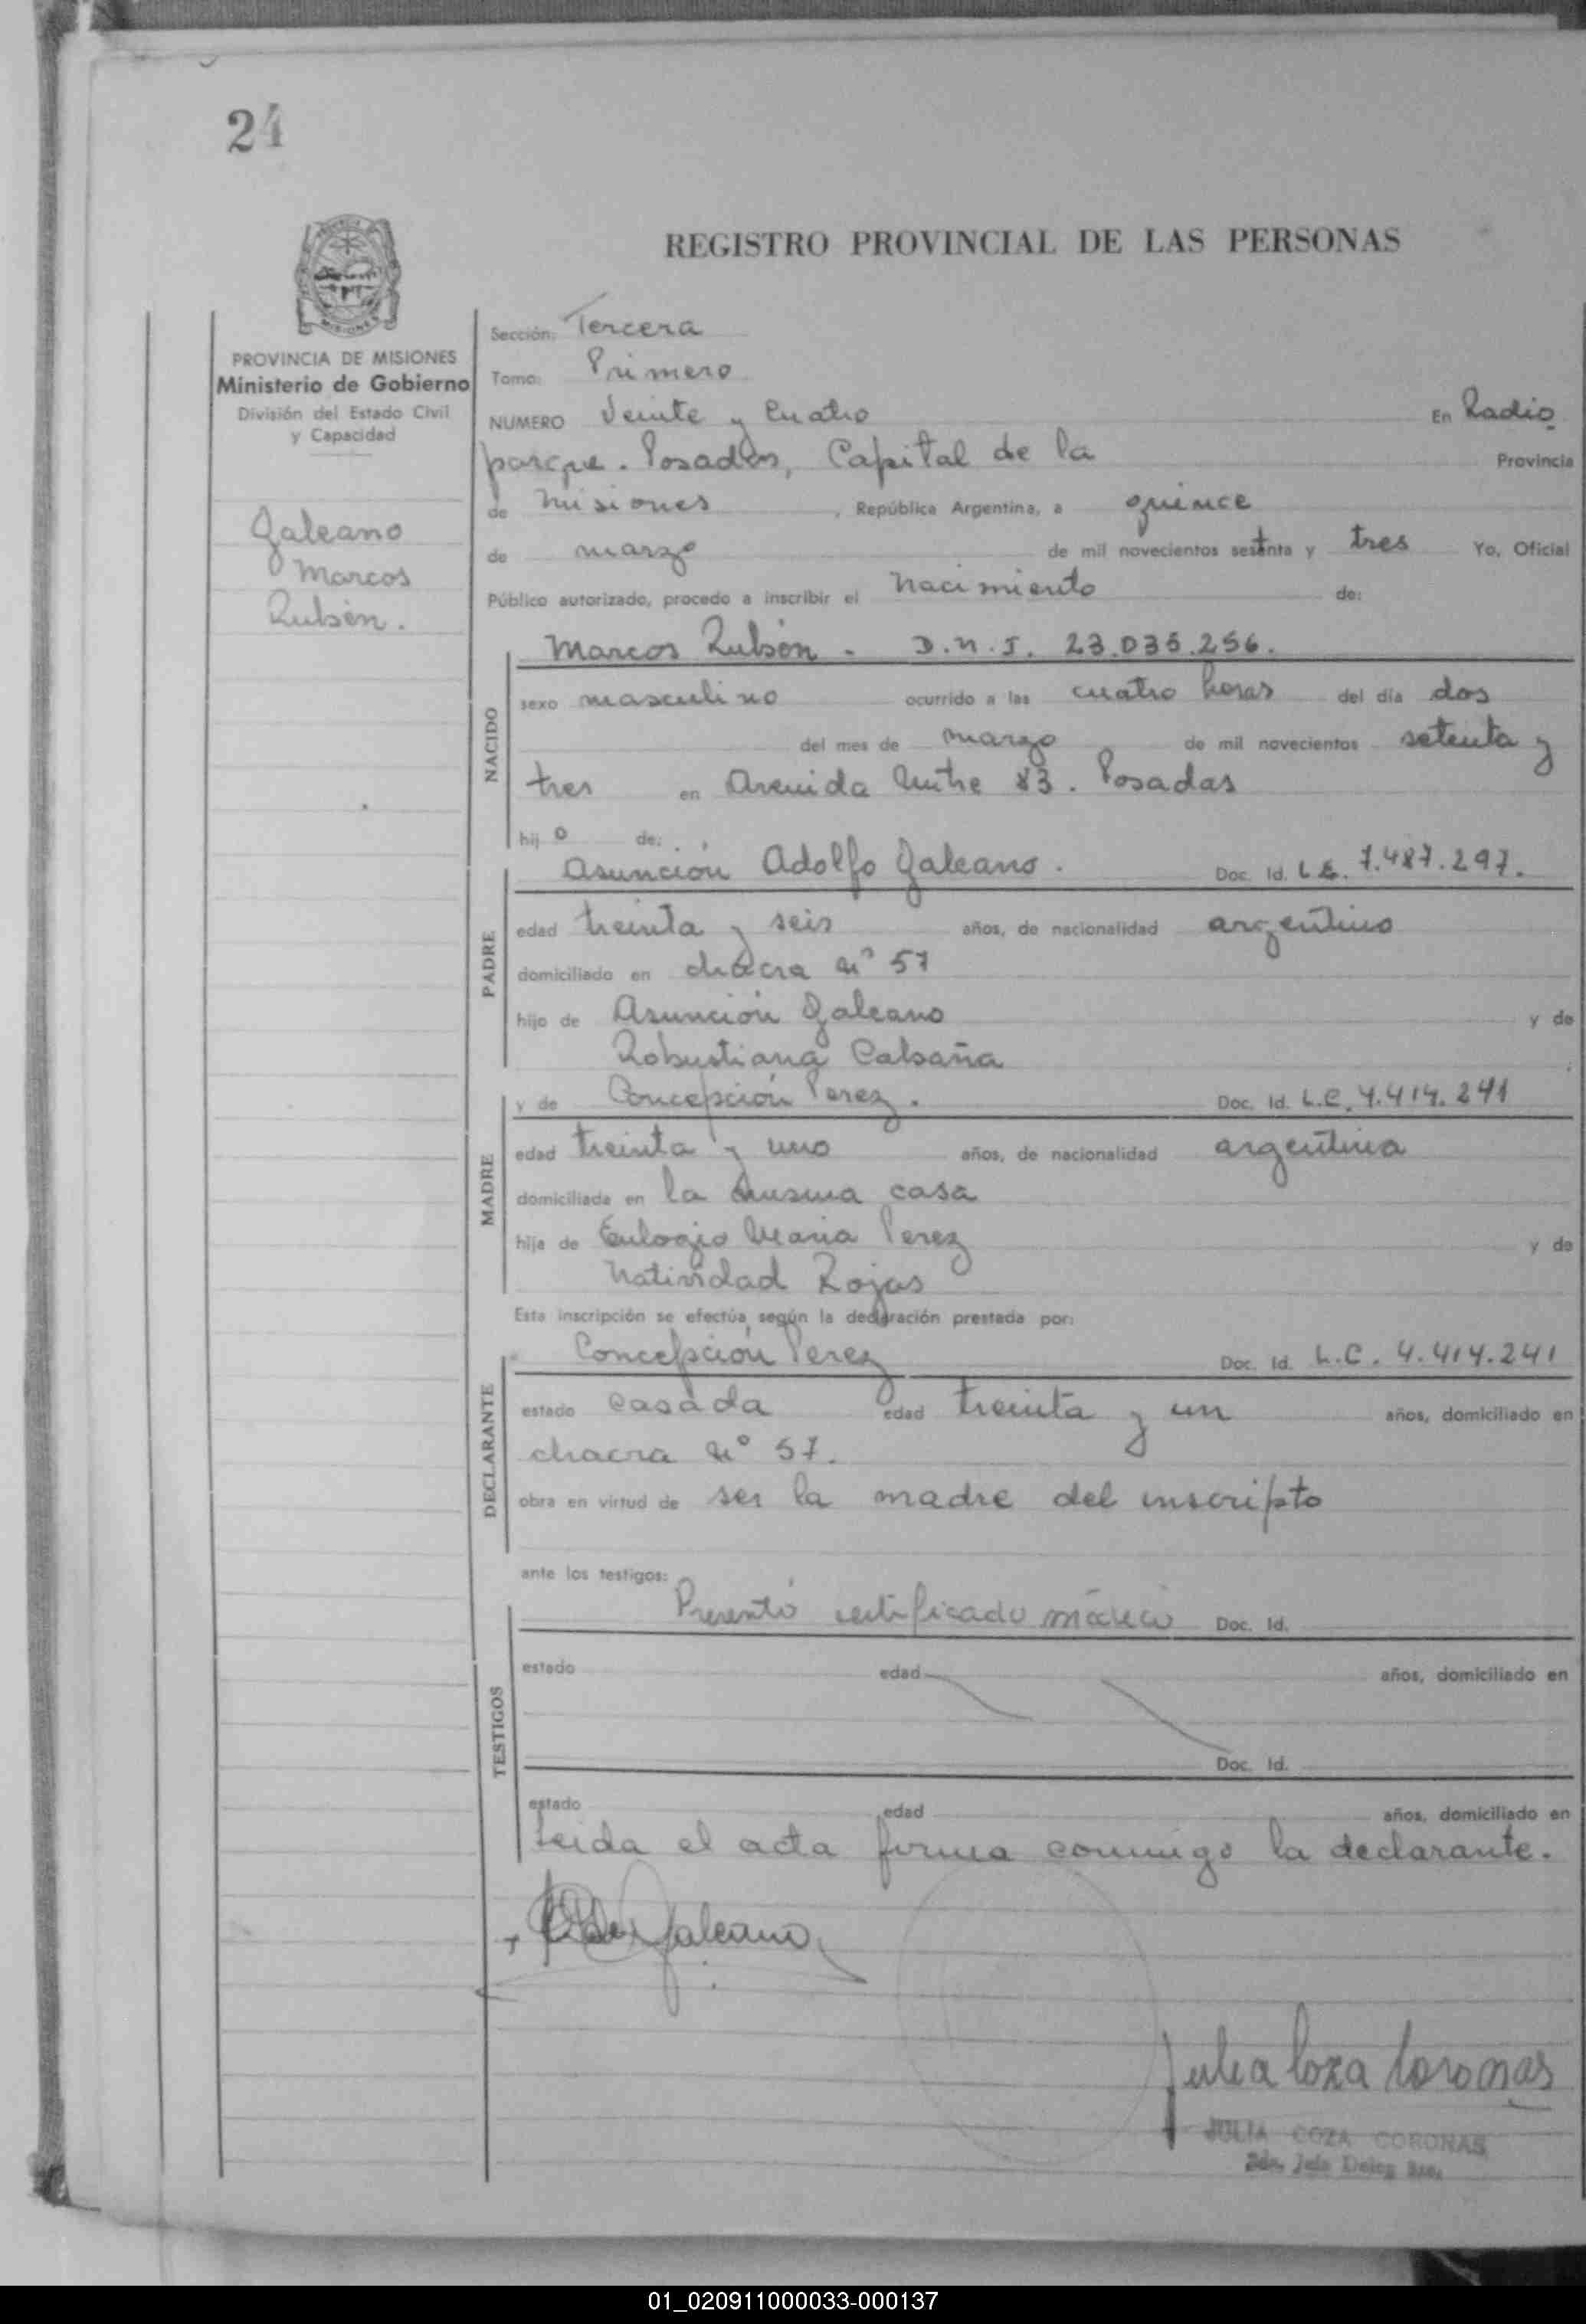 24
REGISTRO PROVINCIAL DE LAS PERSONAS
PROVINCIA DE MISIONES
Ministerio de Gobierno
División del Estado Civil
y Capacidad
Galeano
Marcos
Rubén.
Sección: Tercera
Tomo: Primero
NUMERO Veinte y Cuatro En Radio
parque. Posadas, Capital de la Provincia
de Misiones, República Argentina, a quince
de marzo de mil novecientos setenta y tres Yo, Oficial
Público autorizado, procedo a inscribir el Nacimiento de:
NACIDO
Marcos Rubén - D.N.I. 23.035.256.
sexo masculino ocurrido a las cuatro horas del día dos
del mes de marzo de mil novecientos setenta y
tres en Avenida Mitre 83. Posadas
hijo de:
PADRE
Asunción Adolfo Galeano. Doc. Id. L.E. 7.487.297.
edad treinta y seis años, de nacionalidad argentino
domiciliado en chacra nº 57
hijo de Asunción Galeano y de
Robustiana Cabaña
MADRE
y de Concepción Perez. Doc. Id. L.C. 4.414.241
edad treinta y uno años, de nacionalidad argentina
domiciliada en la misma casa
hija de Eulogio Maria Perez y de
Natividad Rojas
Esta inscripción se efectúa según la declaración prestada por:
DECLARANTE
Concepción Perez Doc. Id. L.C. 4.414.241
estado casada edad treinta y un años, domiciliado en
chacra nº 57.
obra en virtud de ser la madre del inscripto
ante los testigos:
TESTIGOS
Presentó certificado médico Doc. Id.
estado edad años, domiciliado en
Doc. Id.
estado edad años, domiciliado en
Leida el acta firma conmigo la declarante.
Galeano
Julia Coza Coronas
JULIA COZA CORONAS
01_020911000033-000137